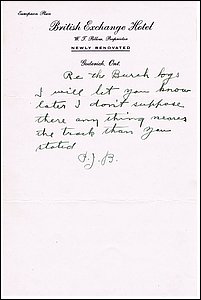 European Plan
British Exchange Hotel
W. T. Pellow, Proprietor
NEWLY RENOVATED
Goderich, Ont.
Re the Burch logs
I will let you know
later I don't suppose
there any thing nearer
the track than you
stated
P.J.B.